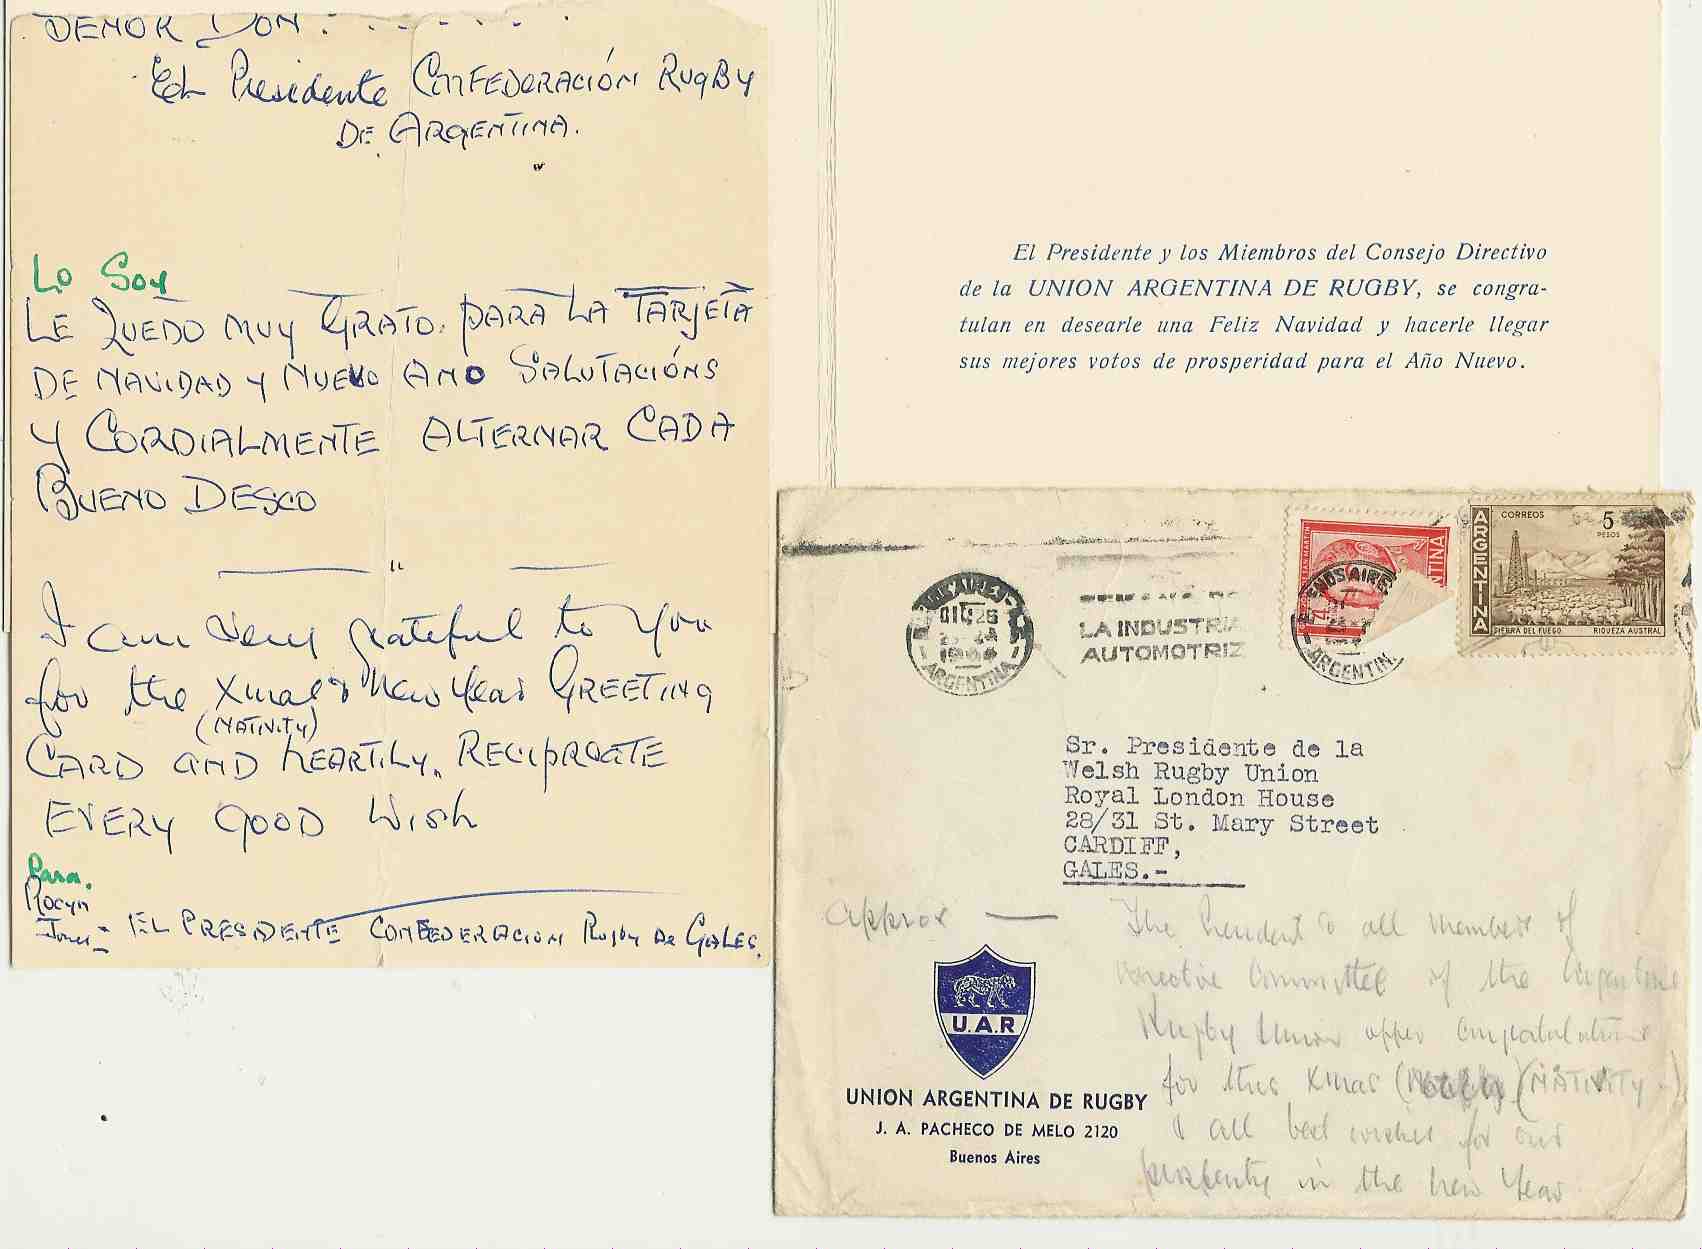 SEÑOR DON: . . . . . .
El Presidente CONFEDERACIÓN RUGBY
DE ARGENTINA.
Lo Soy
LE QUEDO MUY GRATO. PARA LA TARJETA
DE NAVIDAD Y NUEVO ANO SALUTACIÓNS
Y CORDIALMENTE ALTERNAR CADA
BUENO DESCO
I am very grateful to you
for the Xmas & New Year GREETING
(NATIVITY)
CARD AND HEARTILY RECIPROCATE
EVERY GOOD WISH
Para.
Rocyn
Jones = EL PRESIDENTE CONFEDERACION Rugby De GALES.
El Presidente y los Miembros del Consejo Directivo
de la UNION ARGENTINA DE RUGBY, se congra-
tulan en desearle una Feliz Navidad y hacerle llegar
sus mejores votos de prosperidad para el Año Nuevo.
BUENOS AIRES
DIC 26
ARGENTINA
LA INDUSTRIA
AUTOMOTRIZ
BUENOS AIRES
ARGENTIN.
CORREOS 5
PESOS
ARGENTINA
TIERRA DEL FUEGO RIQUEZA AUSTRAL
Sr. Presidente de la
Welsh Rugby Union
Royal London House
28/31 St. Mary Street
CARDIFF,
GALES.-
approx — The President & all members of
Directive Committee of the Argentine
Rugby Union offer congratulations
for this Xmas (NATIVITY)
& all best wishes for our
prosperity in the New Year
U.A.R
UNION ARGENTINA DE RUGBY
J. A. PACHECO DE MELO 2120
Buenos Aires